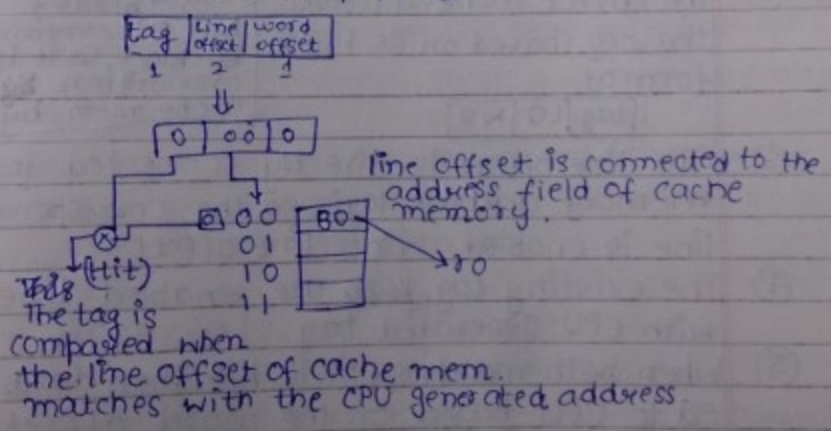 tag line offset word offset
1 2 1
0 00 0
line offset is connected to the
address field of cache
memory.
0 00 B0
01
10
11
r0
(Hit)
The tag is
compared when
the line offset of cache mem.
matches with the CPU generated address.